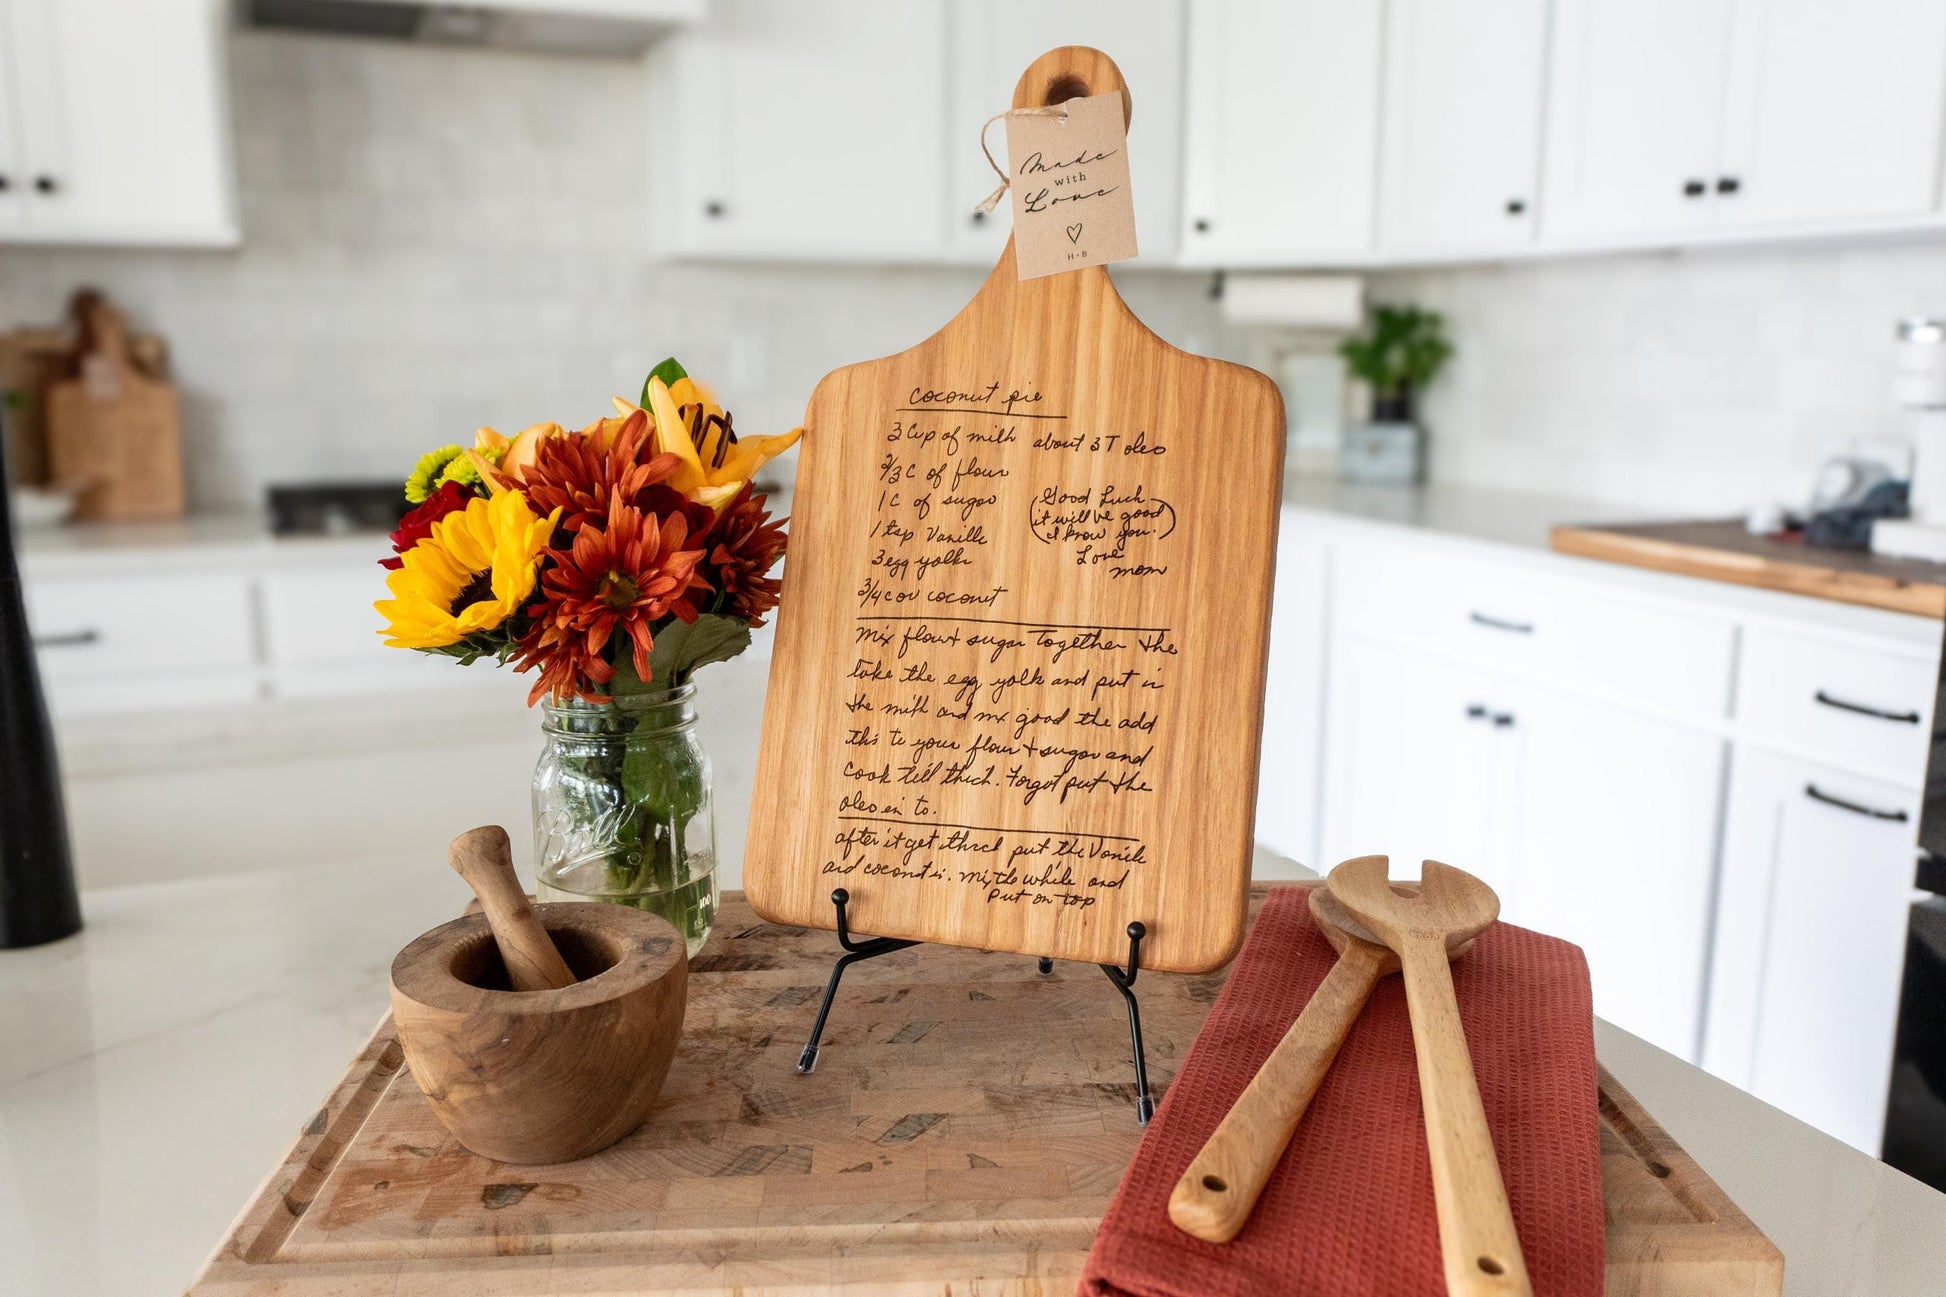 Made
with
Love
H+B
Coconut pie
3 Cup of milk about 3 T oleo
2/3 C of flour
1 C of sugar
1 tsp Vanille
3 egg yolk
3/4 C or coconut
(Good Luck
it will be good
I know you.)
Love
mom
Mix flour + sugar together the
take the egg yolk and put in
the milk and mx good the add
this to your flour + sugar and
Cook till thick. Forgot put the
oleo in to.
after it get thick put the Vanile
and coconut in. Mix the while and
Put on top
Ball
100